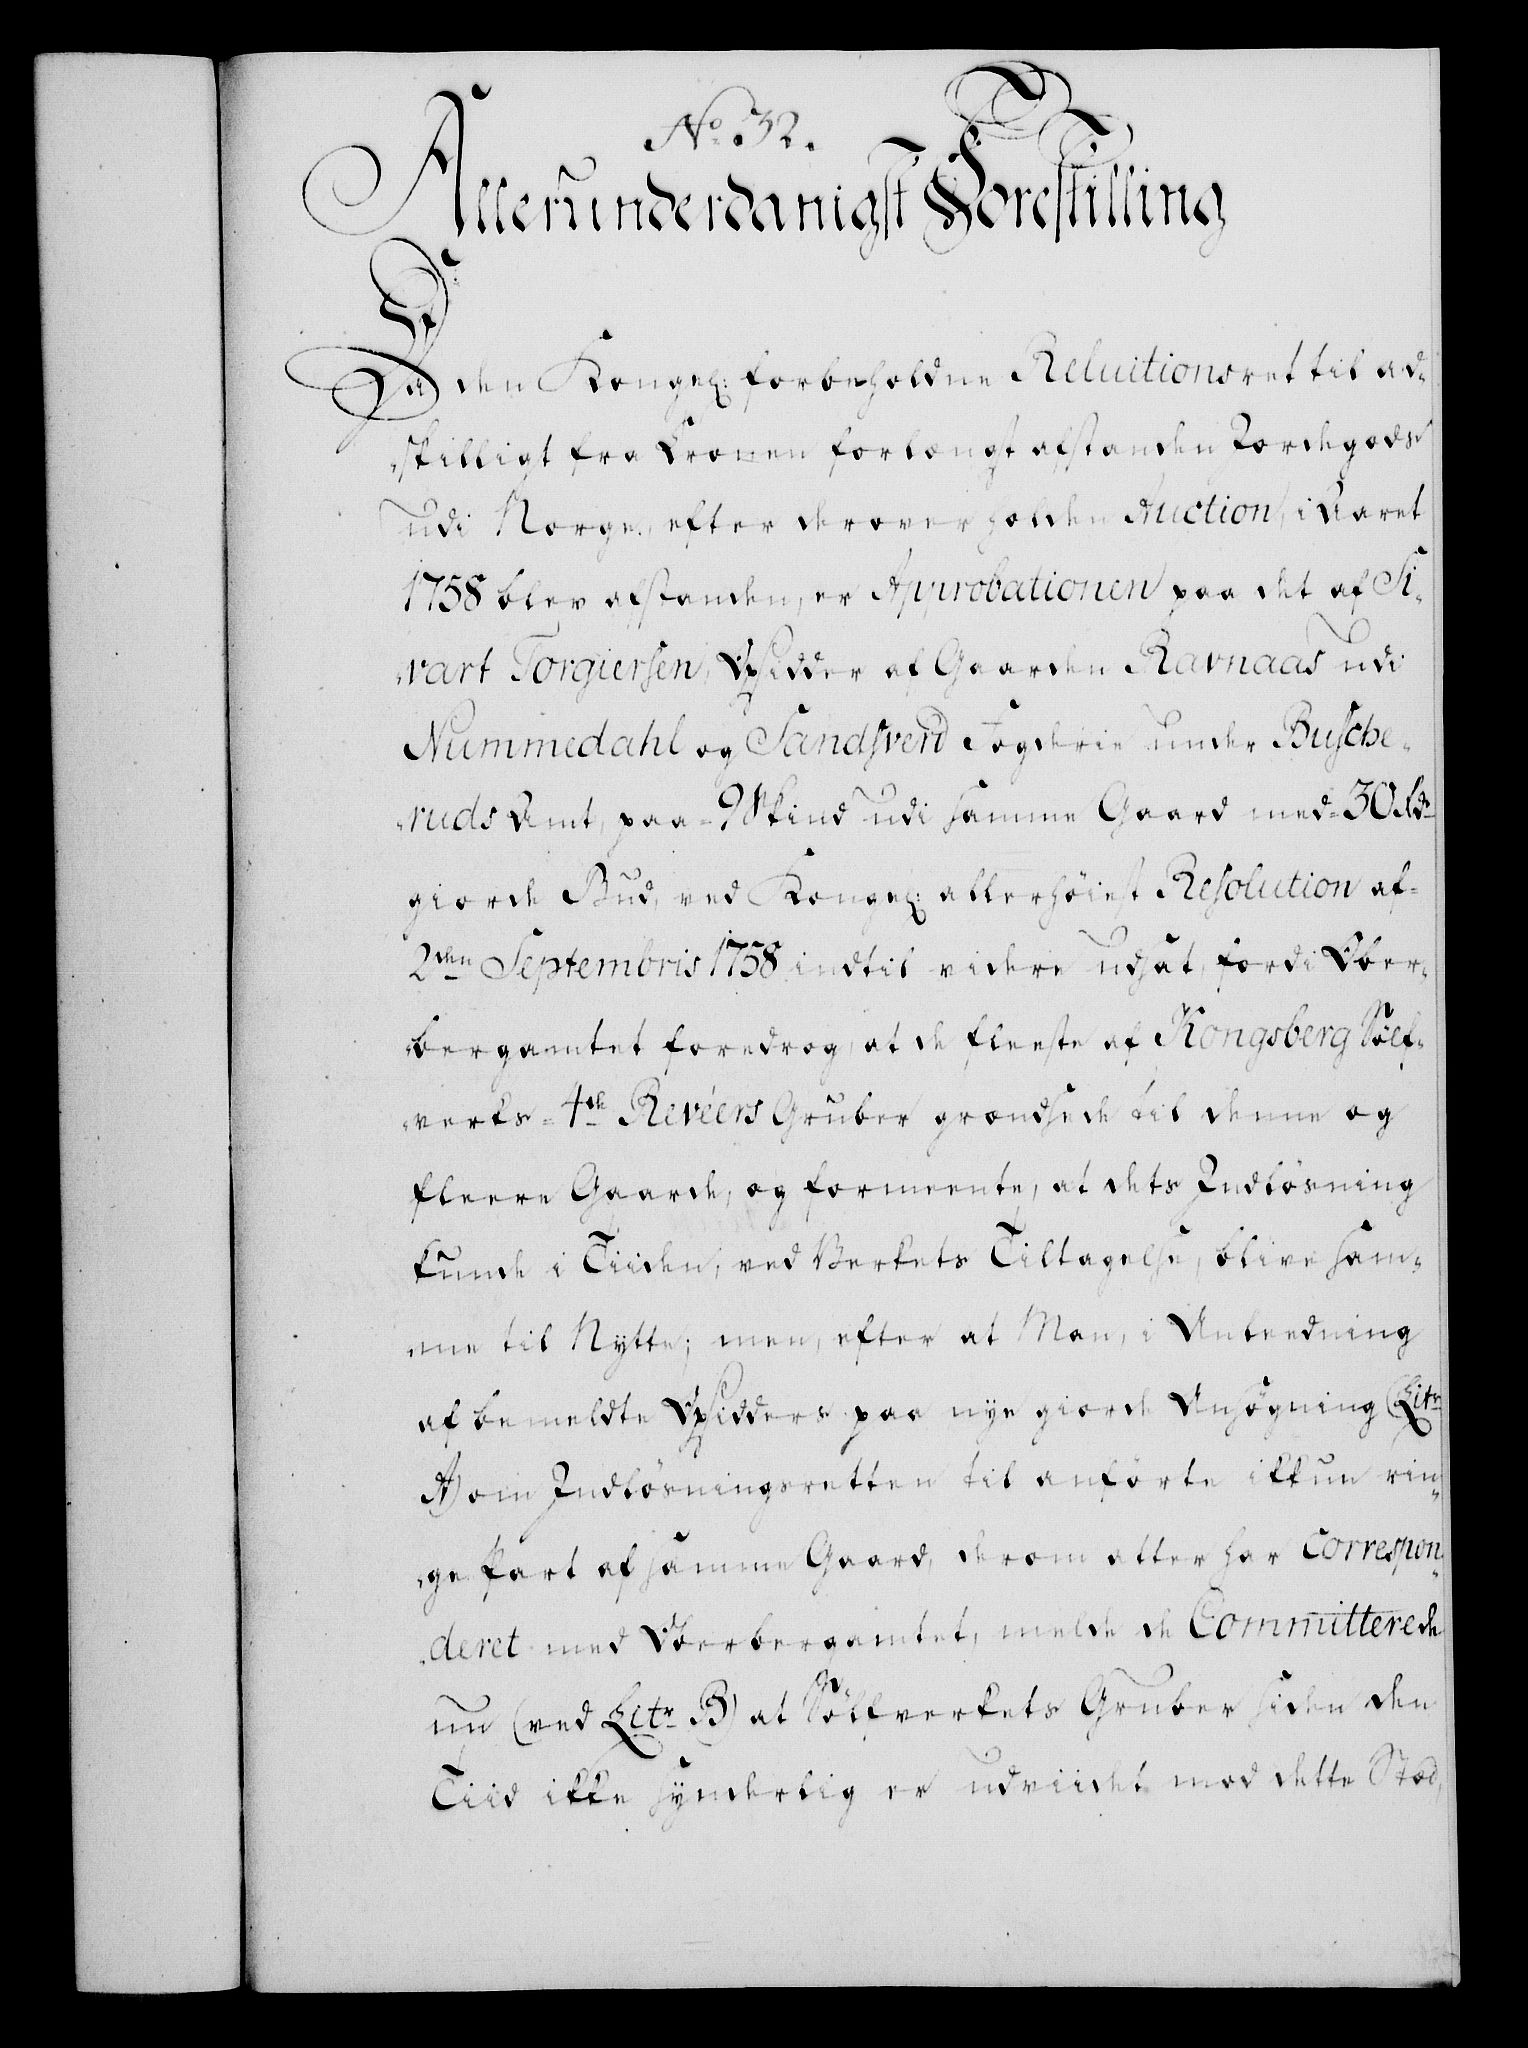 No. 32.
Allerunderdanigst Forestilling
Da den Kongel: forbeholdne Reluitionsret til ad-
skilligt fra Cronen forlængst afstanden Jordegods
udi Norge, efter derover holden Auction, i Aaret
1758 blev afstanden, er Approbationen paa det af Si-
vart Torgiersen, Opsidder af Gaarden Ravnaas udi
Nummedahl og Sandsverd Fogderie under Busche-
ruds Amt, paa 9 Skind udi samme Gaard med 30 Rdr
giorde Bud, ved Kongel: allerhöiest Resolution af
2den Septembris 1758 indtil videre udsat, fordi Ober-
bergamtet foredrog, at de fleeste af Kongsberg Sölf-
verks 4de Reveers Gruber grændsede til denne og
fleere Gaarde, og formeente, at dets Indlösning
kunde i Tiiden, ved Verkets Tiltagelse, blive sam-
me til Nytte; men, efter at Man, i Anleedning
af bemeldte Opsidders paa nye giorde Ansögning (Litr
A) om Indlösningsretten til anförte ikkun rin-
ge Part af samme Gaard, derom atter har correspon-
deret med Oberbergamtet, melde de Committerede
nu (ved Litr B) at Sölfverkets Gruber siden den
Tiid ikke synderlig er udviidet mod dette Stæd,